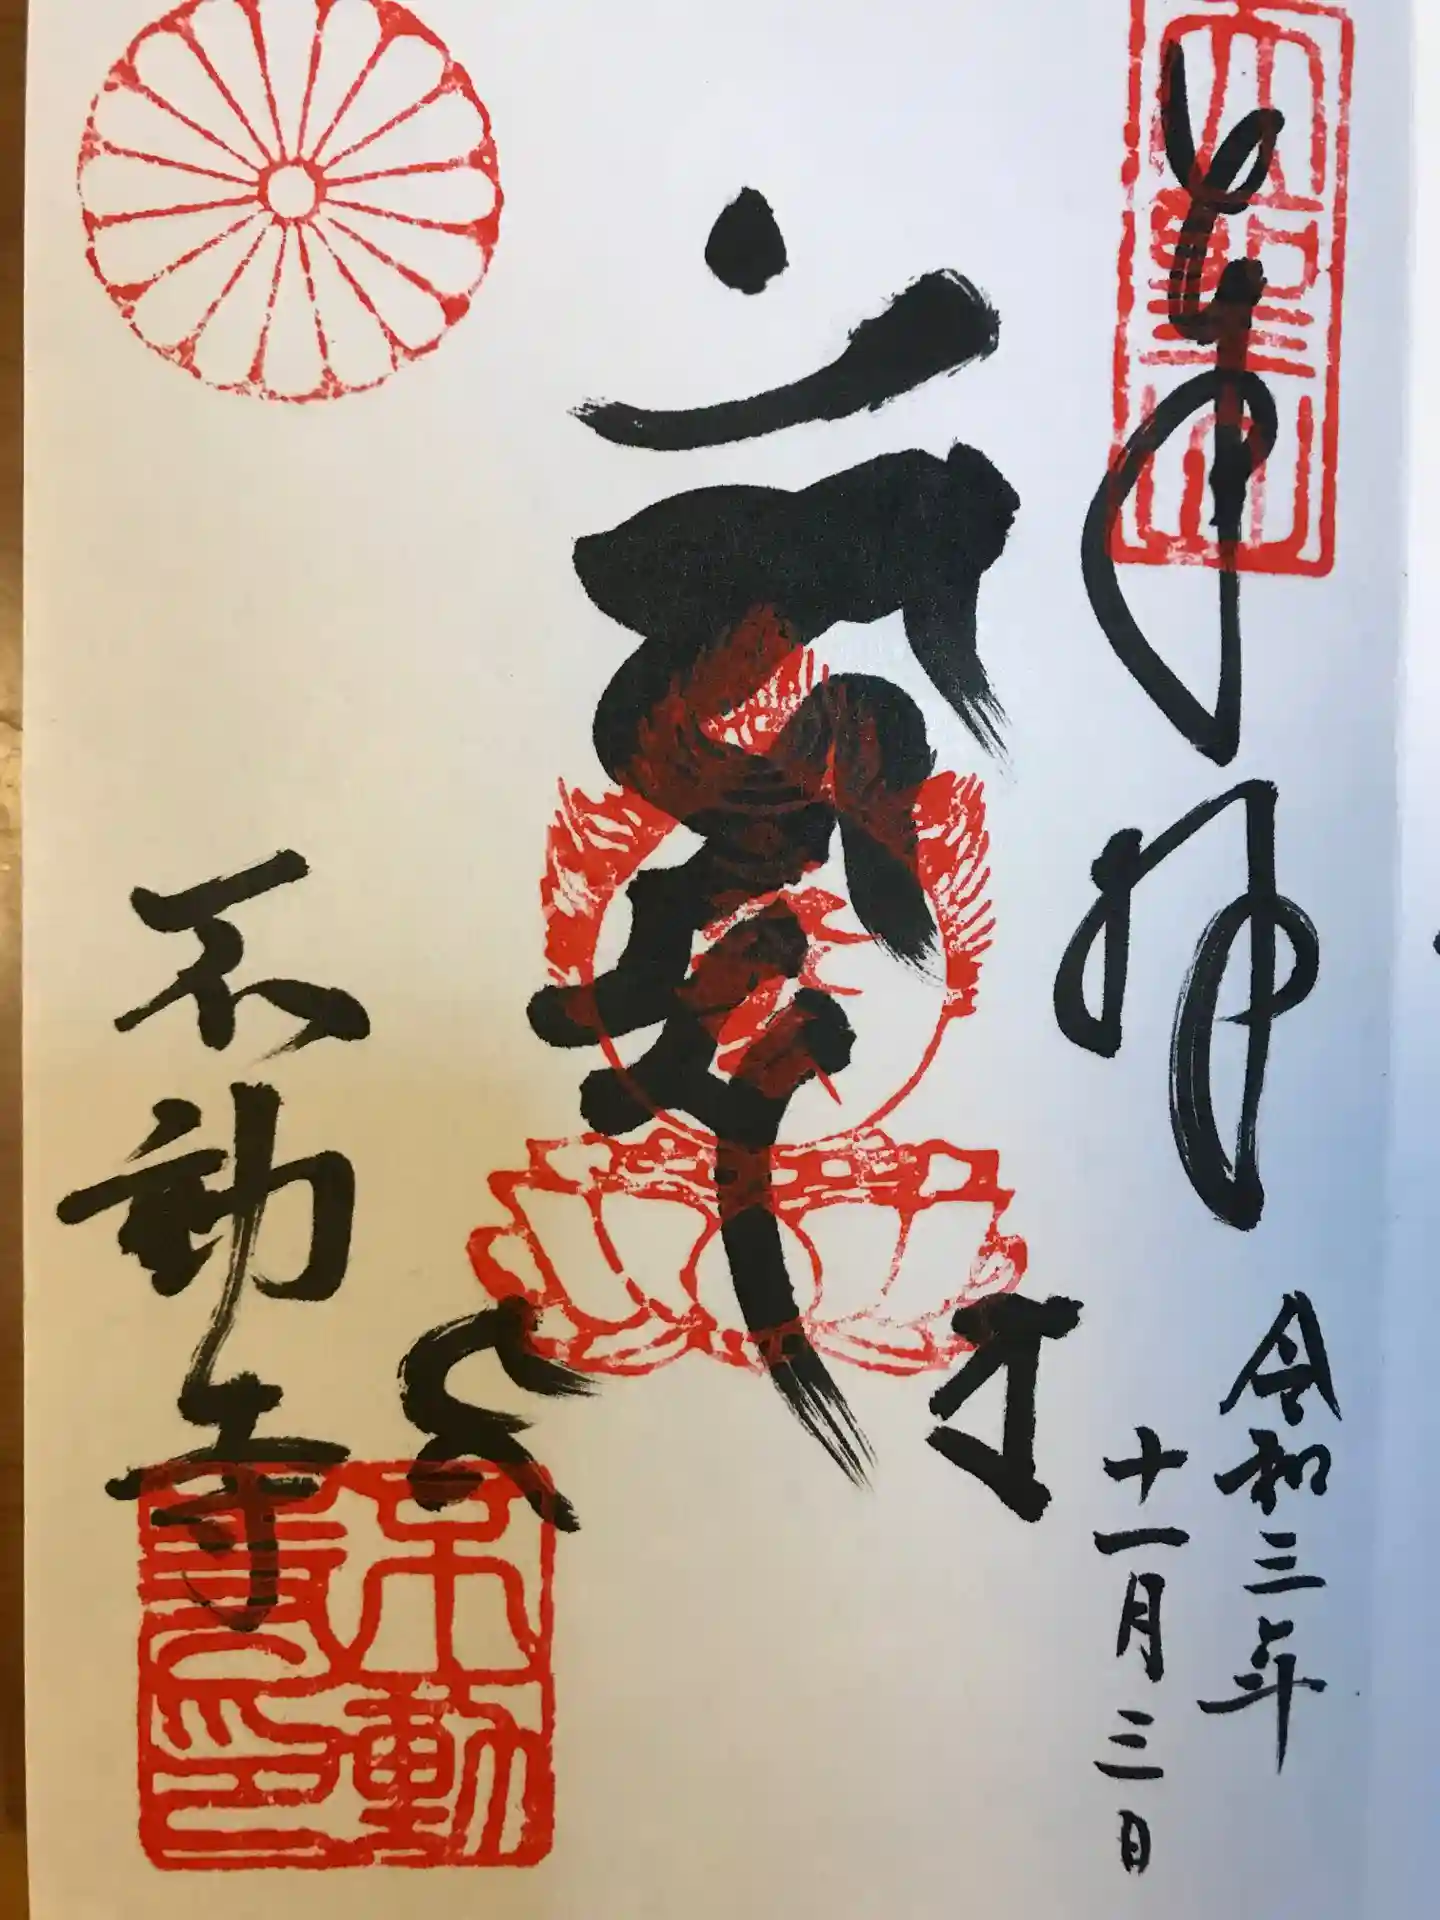 奉拝
大聖山
令和三年
十一月三日
不動寺
不動
寺印